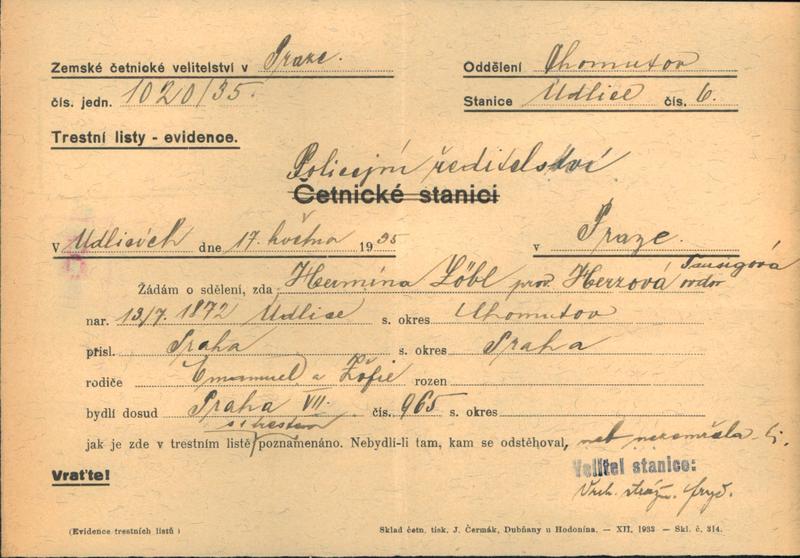 Zemské četnické velitelství v Praze.
Oddělení Chomutov
čís. jedn. 1020/35.
Stanice Udlice čís. 6.
Trestní listy - evidence.
Policejní ředitelství
Četnické stanici
V Udlicích dne 17. května 1935
v Praze.
Žádám o sdělení, zda Hermína Löbl prov. Herzová Taussigová
nar. 13/7. 1872 Udlice s. okres Chomutov
přísl. Praha s. okres Praha
rodiče Emanuel a Žofie rozen
bydlí dosud Praha VII. čís. 965 s. okres
s trestem
jak je zde v trestním listě poznamenáno. Nebydlí-li tam, kam se odstěhoval, neb nezemřela-li.
Vraťte!
Velitel stanice:
Vrch. strážm.
(Evidence trestních listů)
Sklad četn. tisk. J. Čermák, Dubňany u Hodonína. — XII, 1933 — Skl. č. 314.